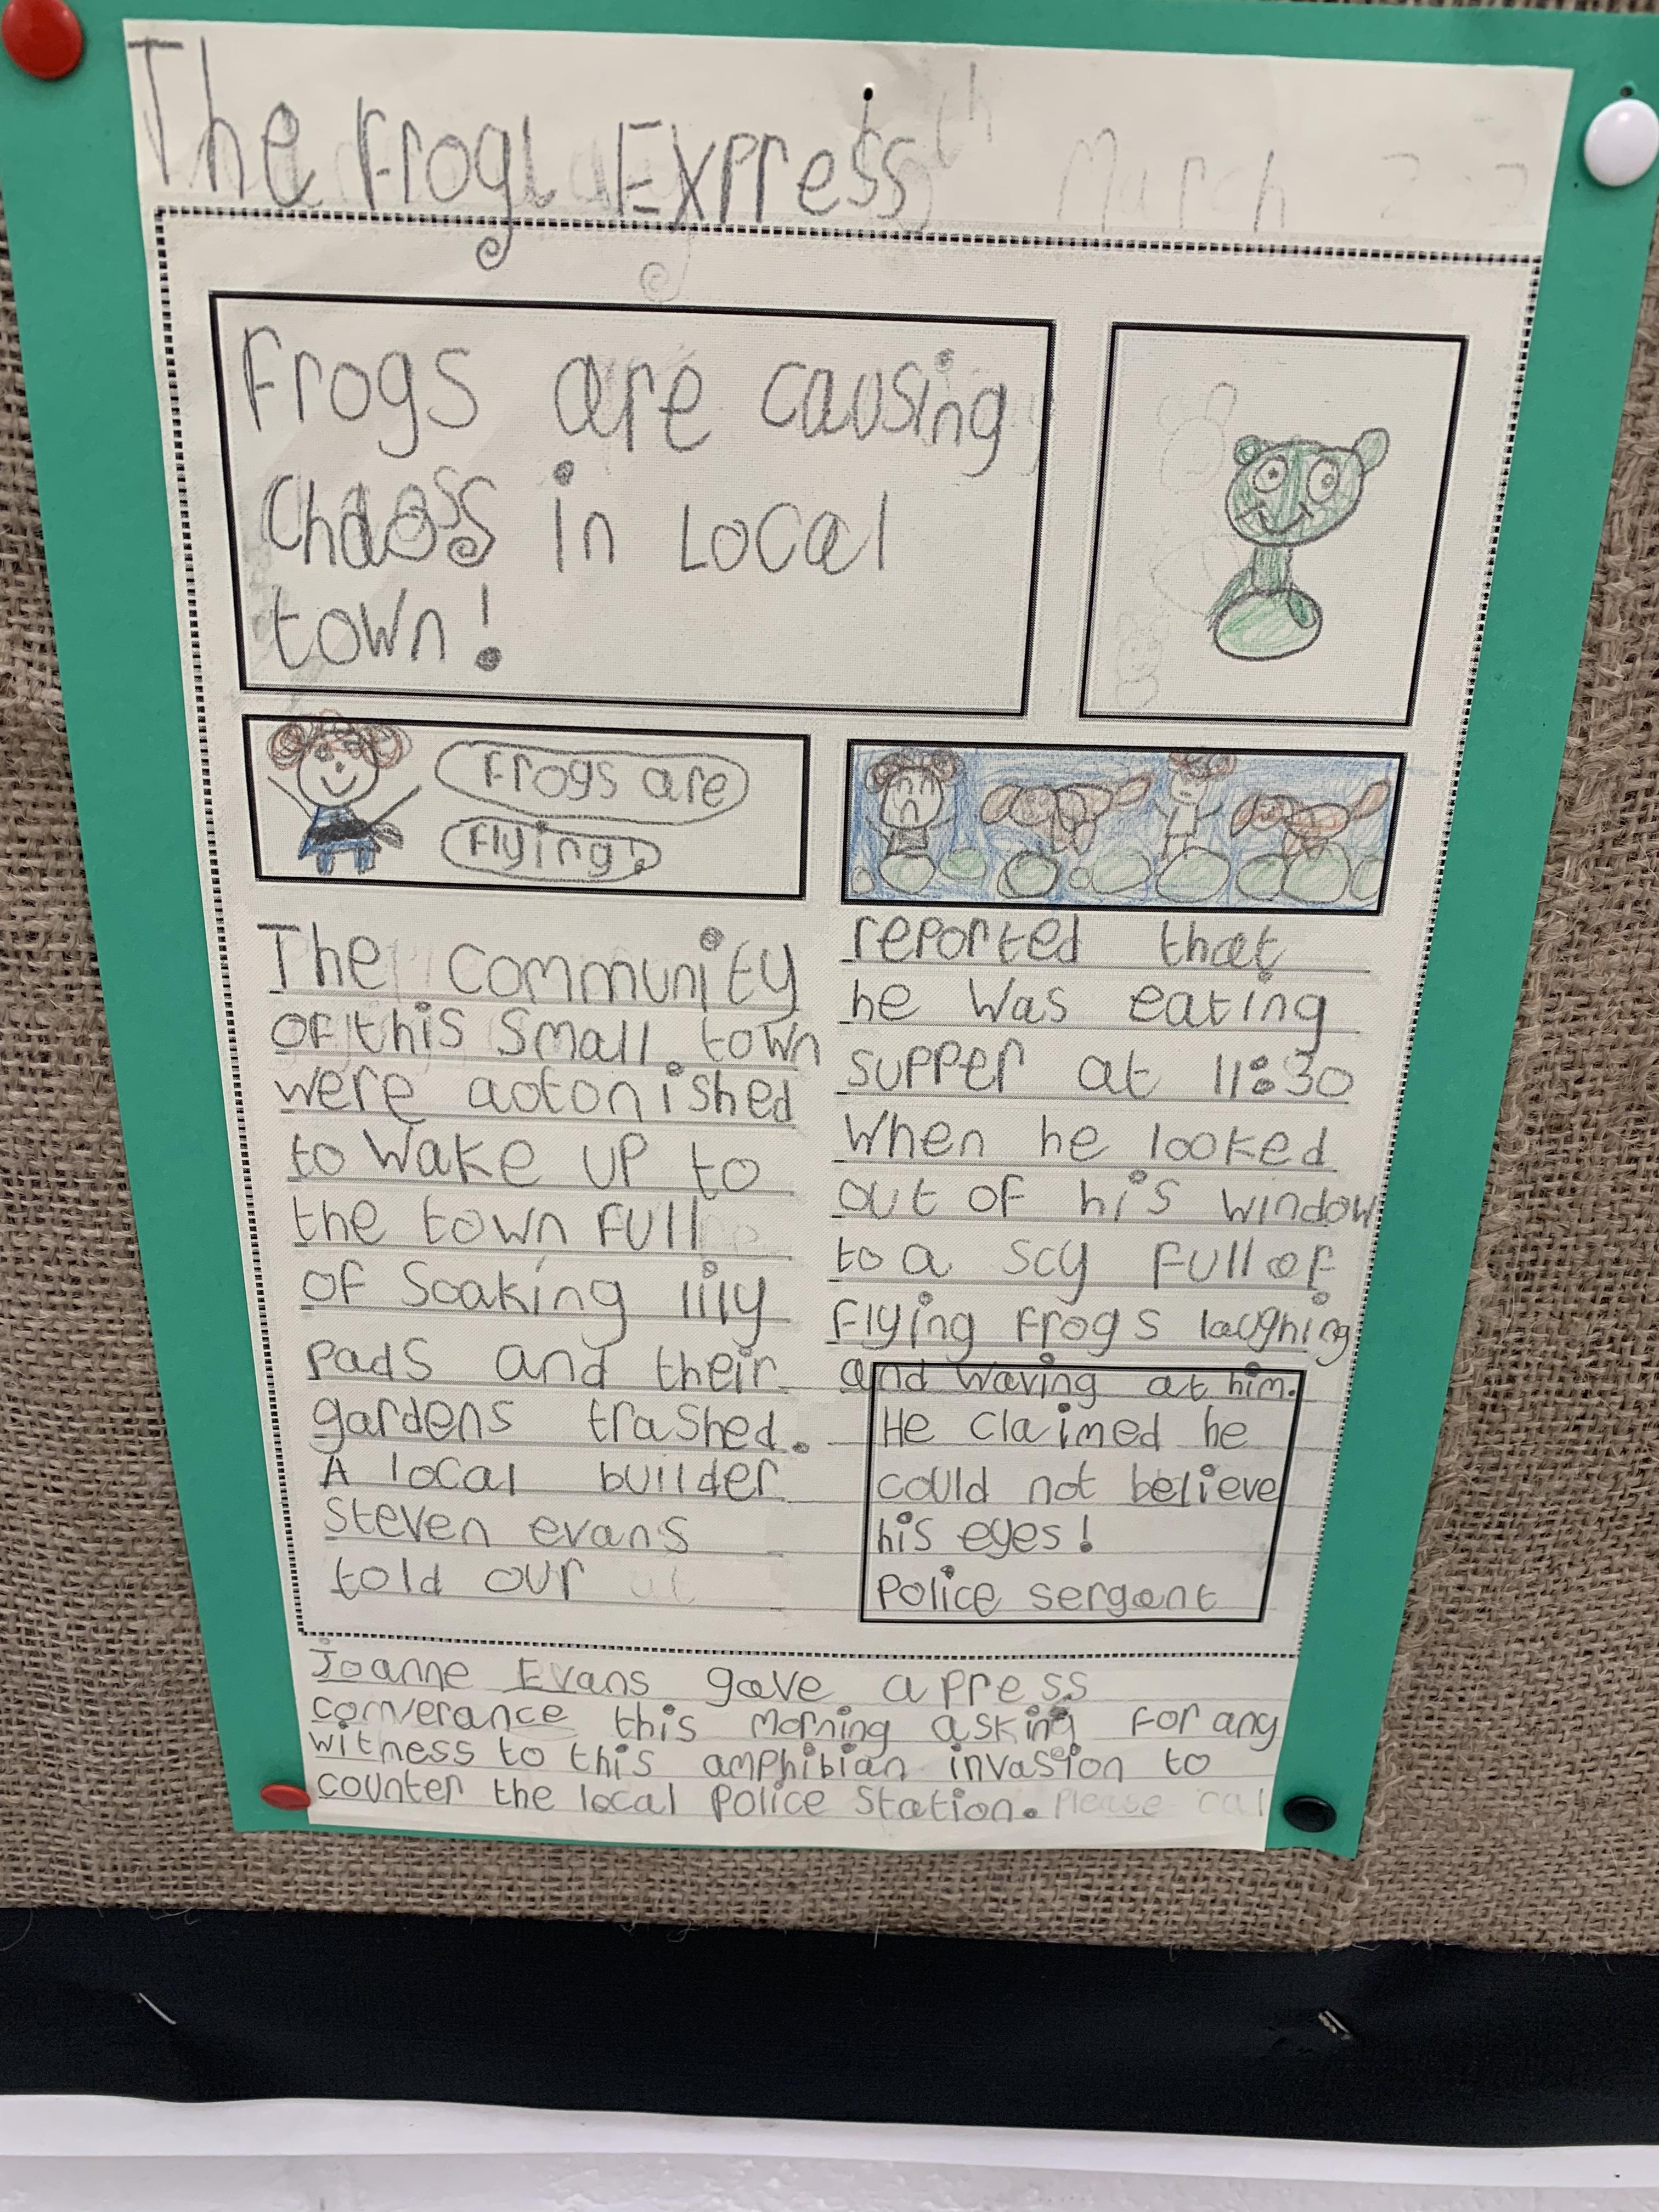 The Frog Express
Frogs are causing
chaos in Local
town!
Frogs are
flying!
The community
of this small town
were aotonished
to wake up to
the town full
of soaking lily
pads and their
gardens trashed.
A local builder
Steven evans
told our
reported that
he was eating
supper at 11:30
When he looked
out of his window
to a scy full of
flying frogs laughing
and waving at him.
He claimed he
could not believe
his eyes!
Police sergant
Joanne Evans gave a press
converance this morning asking for any
witness to this amphibian invasion to
counter the local police station.